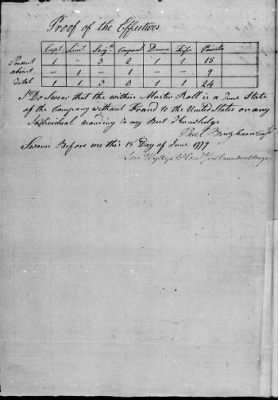 Proof of the Effectives
Capt Lieut Serjts Corporals Drums Fifes Privates
Present 1 - 3 2 1 1 15
absent - 1 - 1 - - 9
Total 1 1 3 3 1 1 24
I Do Swear that the within Muster Roll is a True State
of the Company without Fraud to the United States or any
Individual according to my Best Knowledge
Bingham Capt
Sworn Before me this 15th Day of June 1779
Wyllys Colo